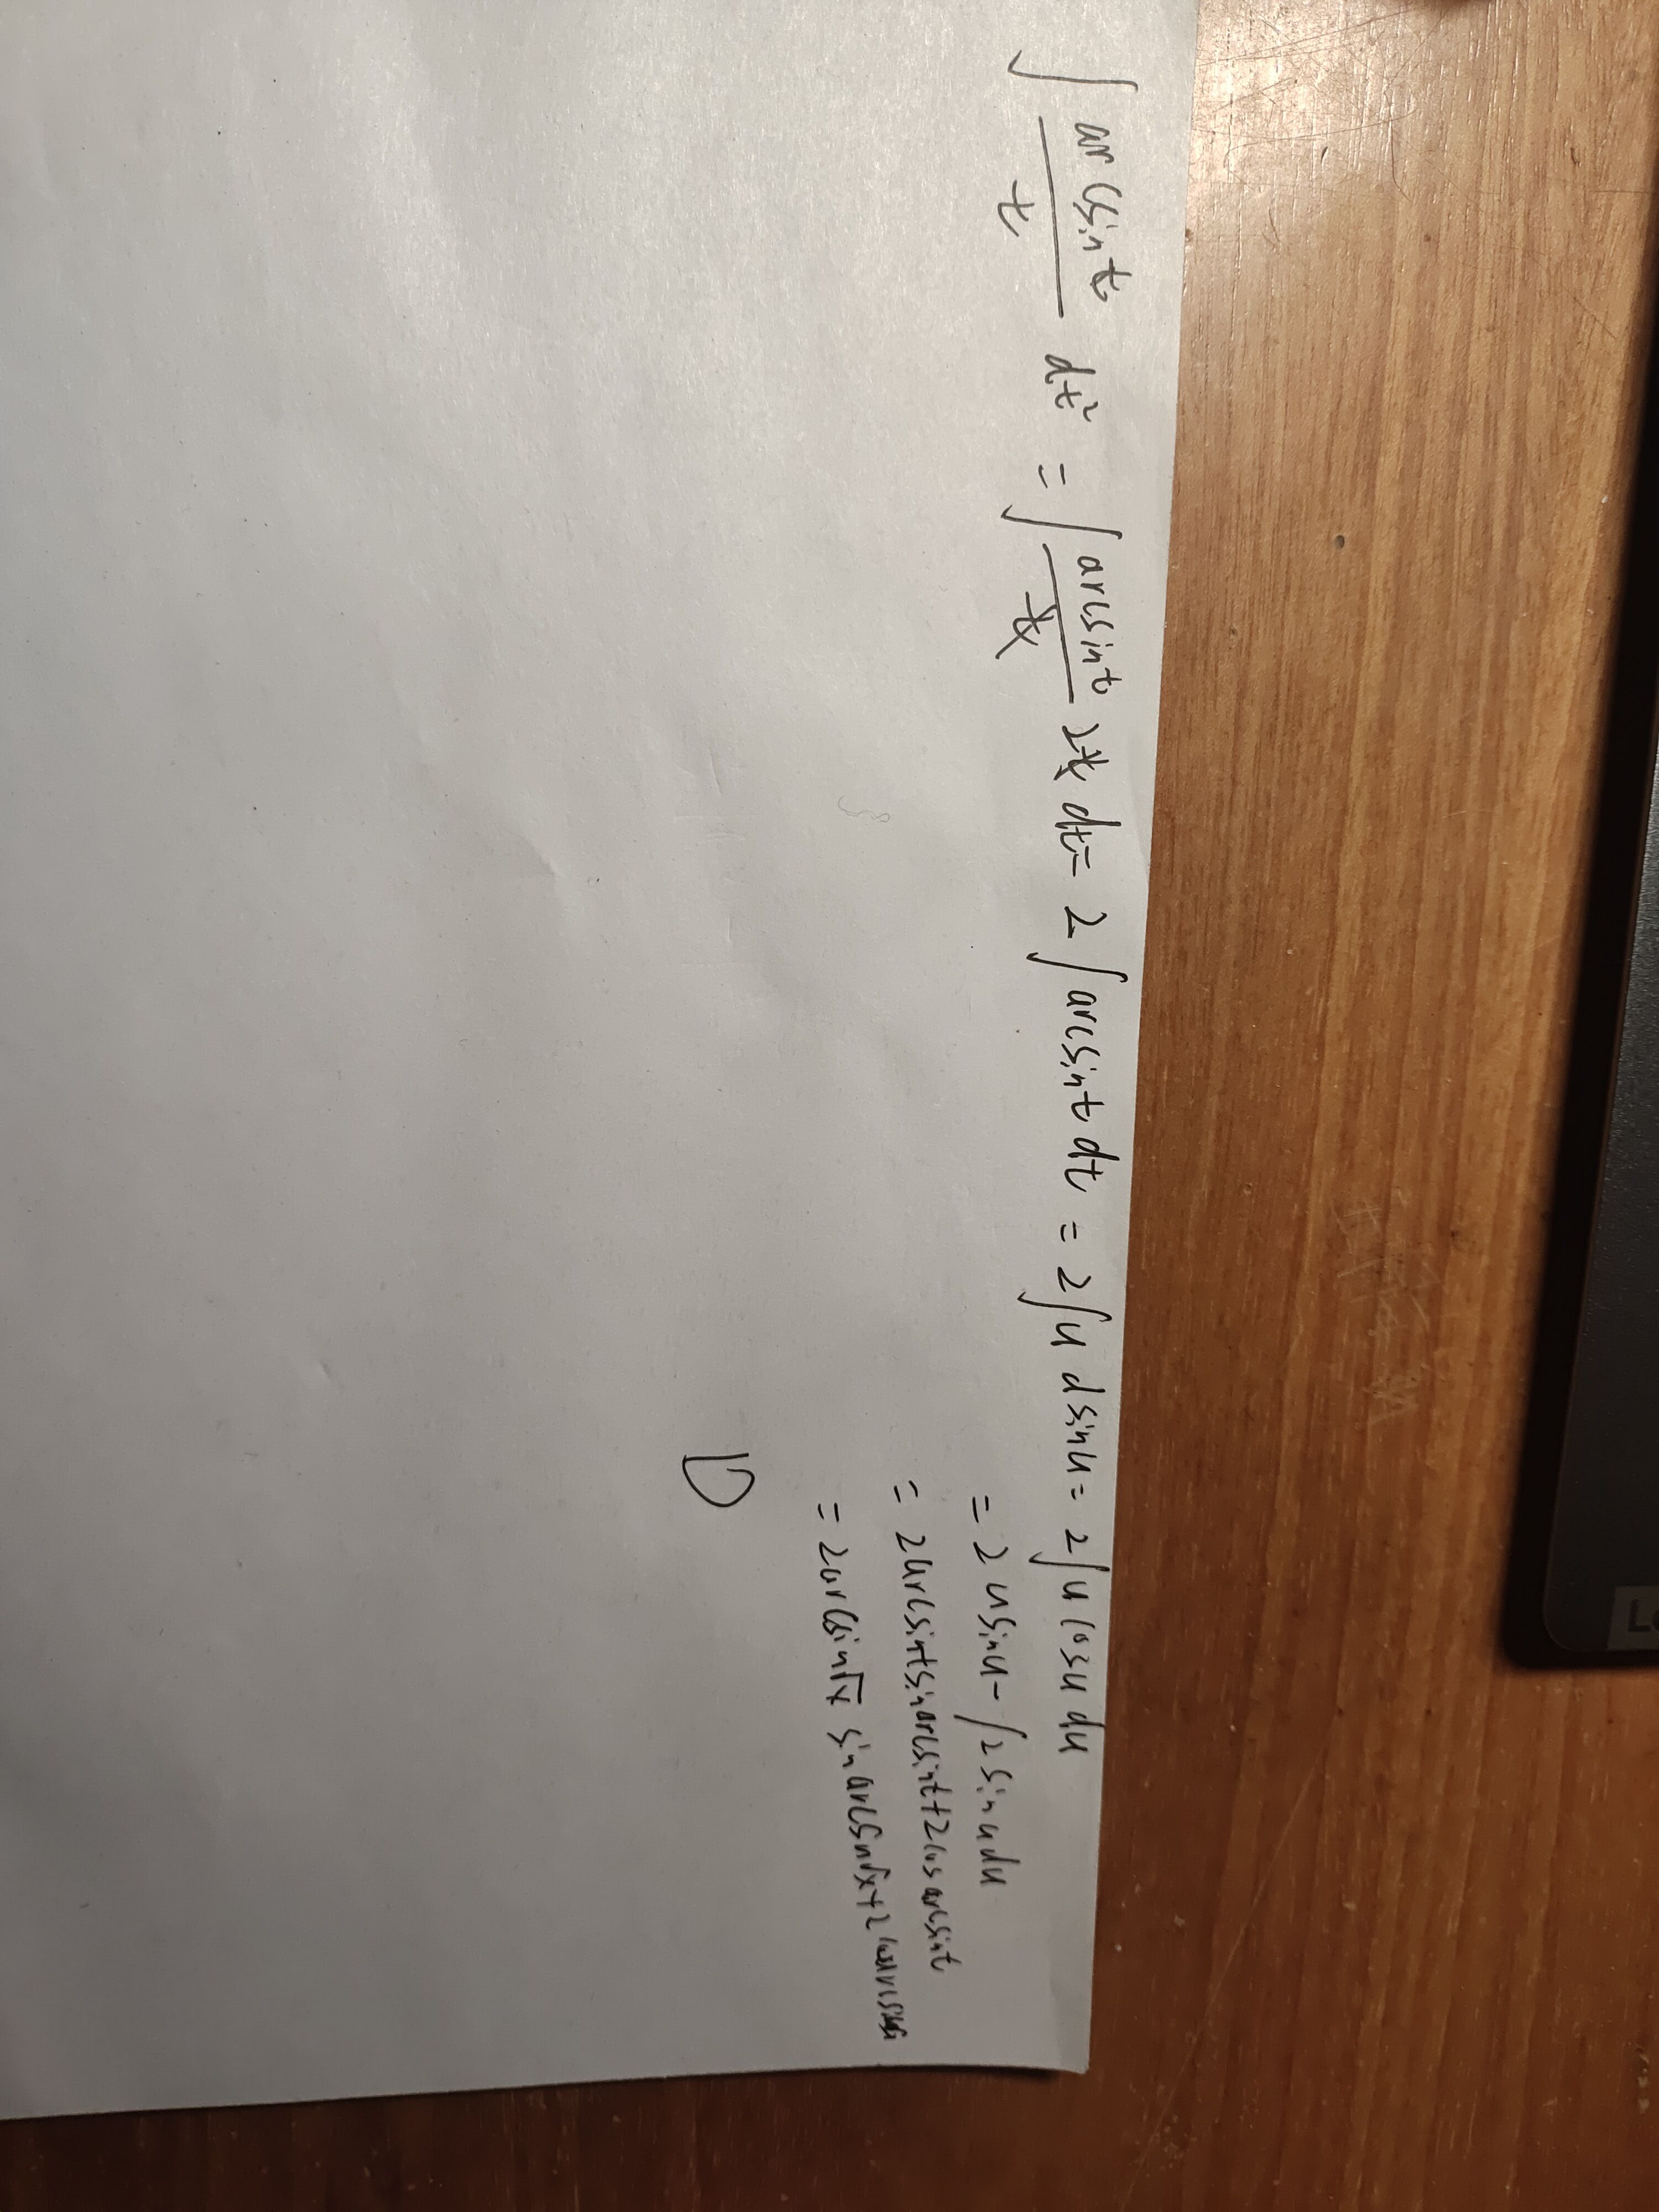 ∫ arcsint/t dt² = ∫ arcsint/t 2t dt = 2 ∫ arcsint dt = 2∫u dsinu = 2∫u cosu du
= 2usinu - ∫2sinudu
= 2arcsintsinarcsint+2cosarcsint
= 2arcsin√x sinarcsin√x+2
D